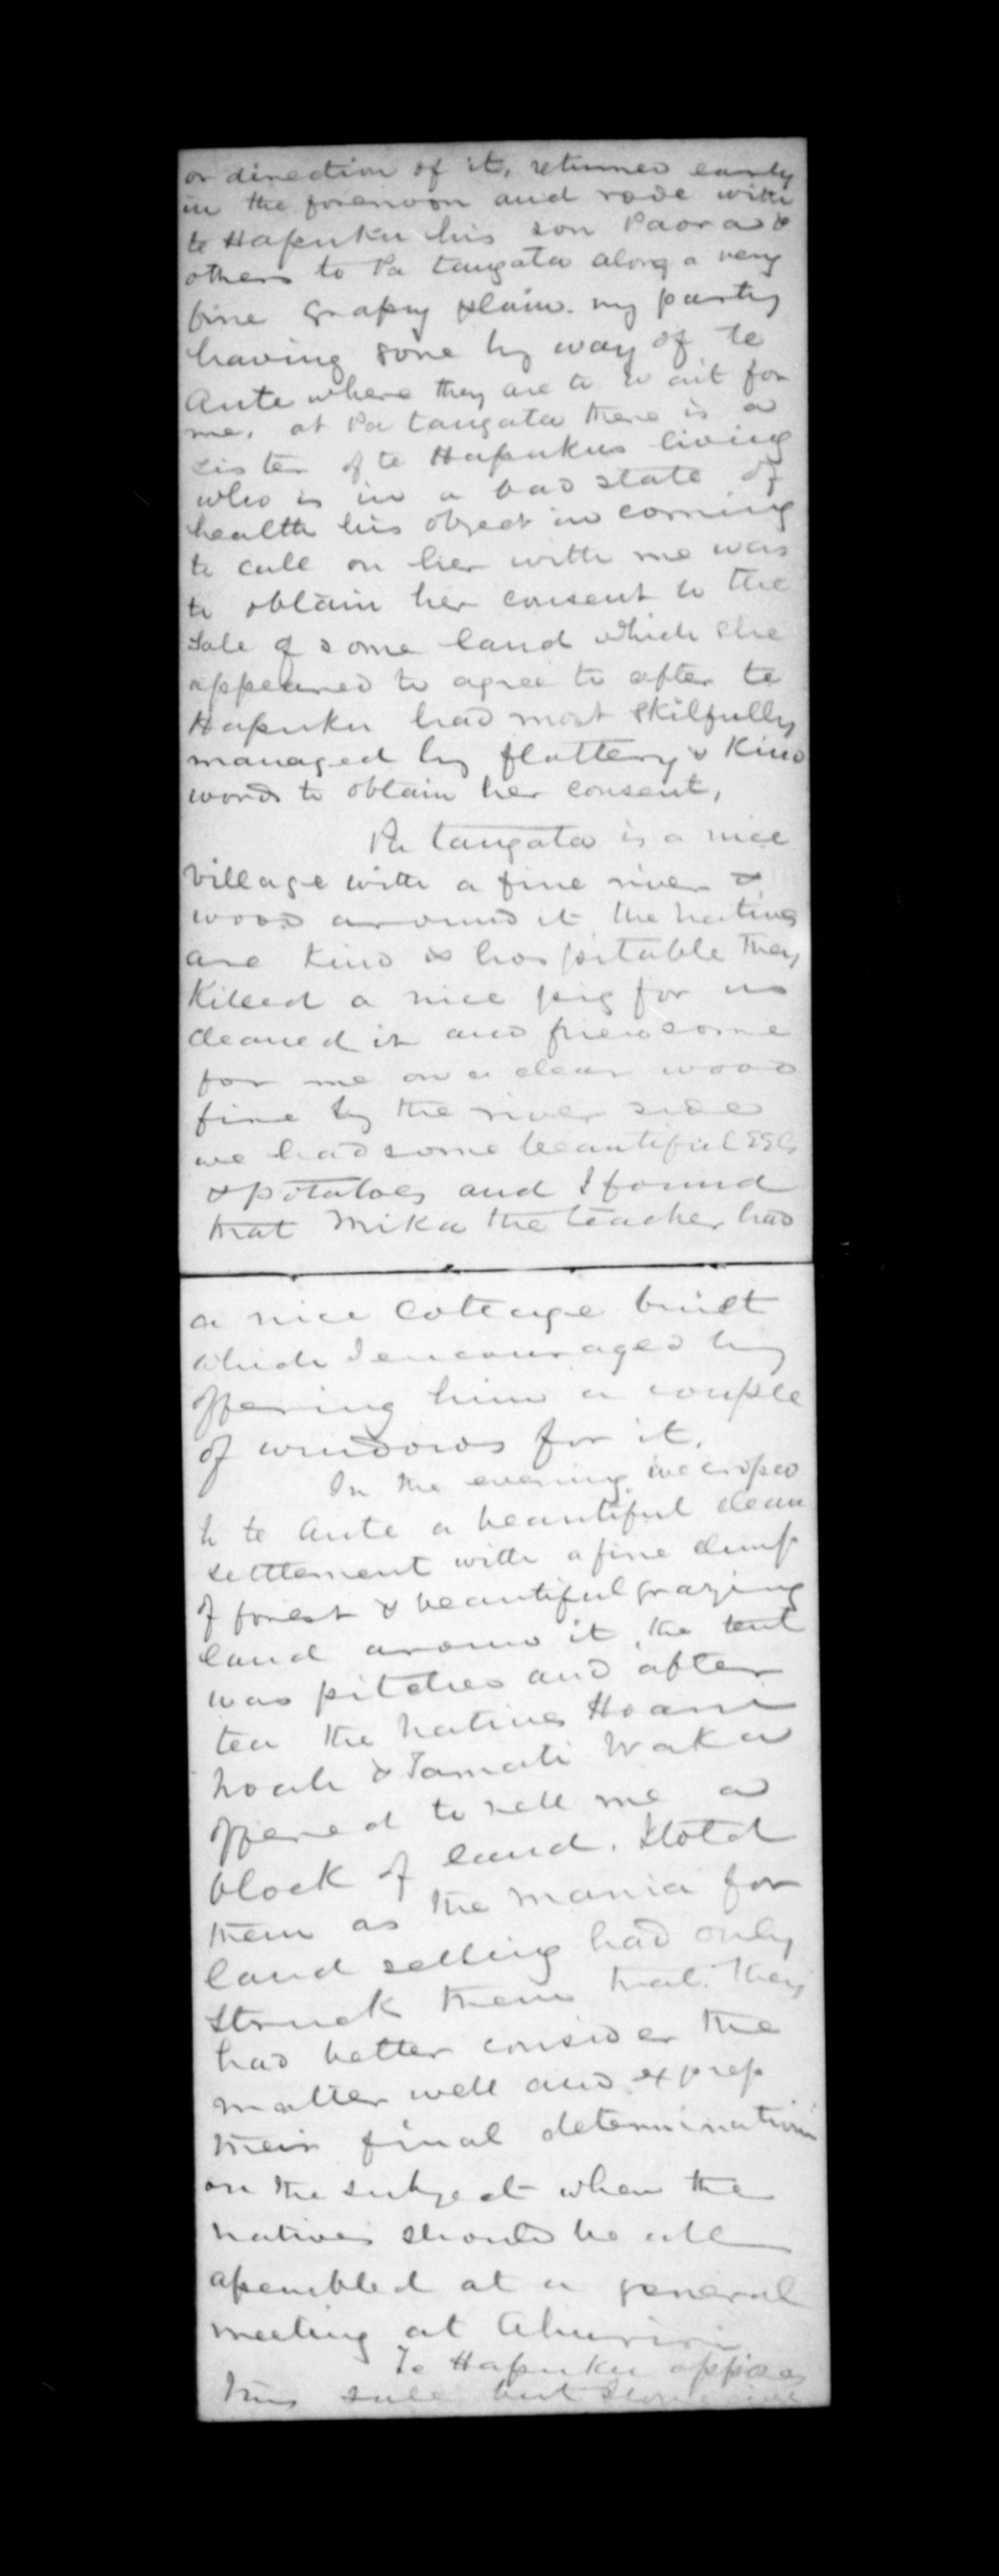 or direction of it, returned early
in the forenoon and rode with
te Hapuku his son Paora &
others to Pa tangata along a very
fine grassy plain. my party
having gone by way of te
Aute where they are to wait for
me, at Pa tangata there is a
sister of te Hapukus living
who is in a bad state of
health his object in coming
to call on her with me was
to obtain her consent to the
sale of some land which she
appeared to agree to after te
Hapuku had most skilfully
managed by flattery & kind
words to obtain her consent,
Pa tangata is a nice
village with a fine river &
wood around it the natives
are kind & hospitable they
killed a nice pig for us
cleaned it and fried some
for me on a clear wood
fire by the river side
we had some beautiful
& potatoes and I found
that Mika the teacher had
a nice cottage built
which I encouraged by
offering him a couple
of windows for it.
In the evening we crossed
to te Aute a beautiful clean
settlement with a fine clump
of forest & beautiful grazing
land around it, the tent
was pitched and after
tea the natives Hoani
& Tamati Waka
offered to sell me a
block of land. I told
them as the mania for
land selling had only
struck them that they
had better consider the
matter well and express
their final determination
on the subject when the
natives should be all
assembled at a general
meeting at Ahuriri
Te Hapuku opposes
this sale but